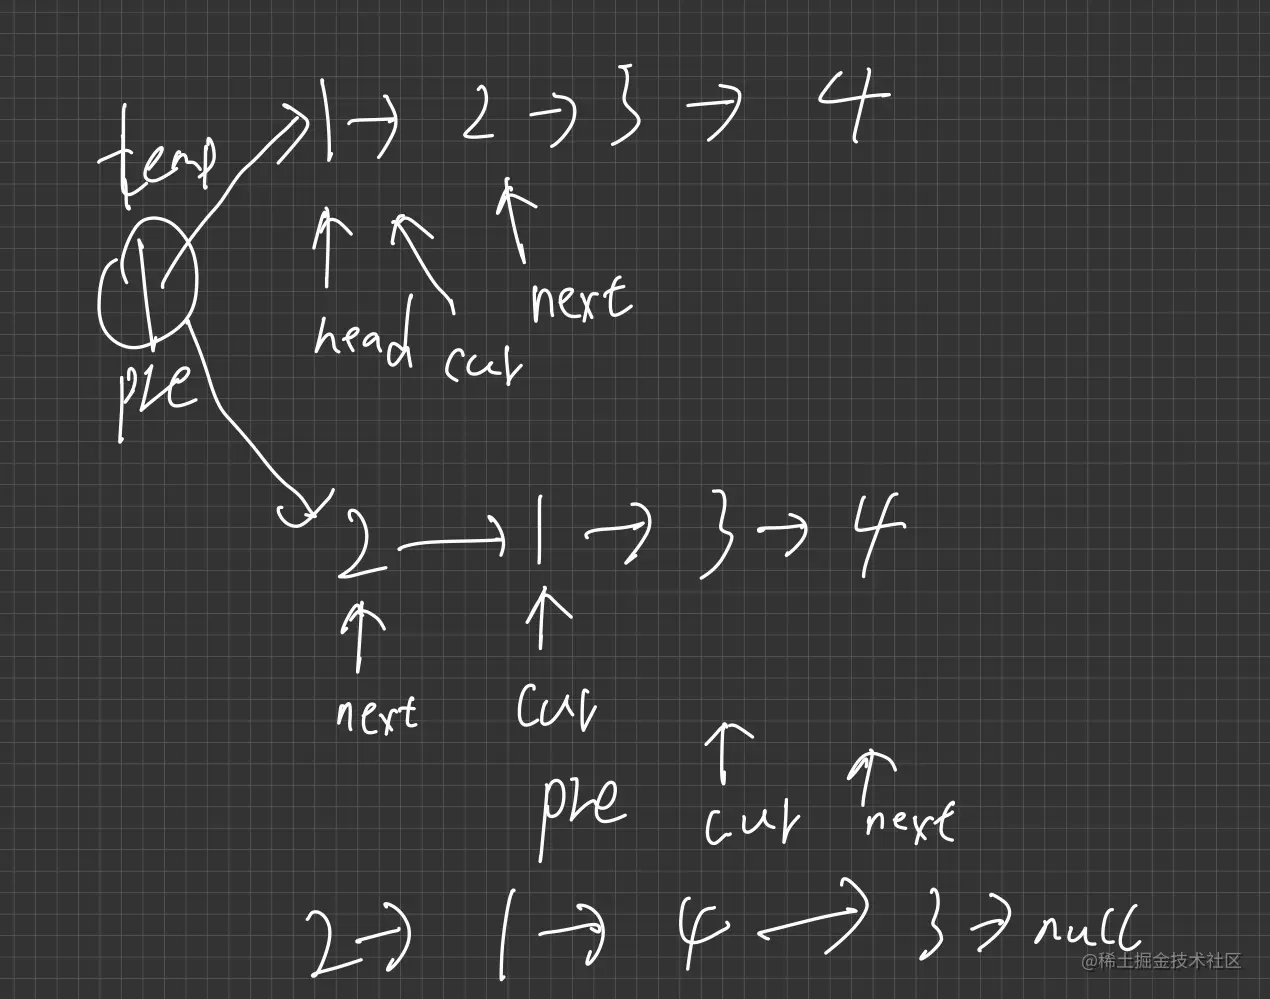 1 → 2 → 3 → 4
temp
head cur next
pre
2 → 1 → 3 → 4
next cur
pre cur next
2 → 1 → 4 → 3 → null
@稀土掘金技术社区